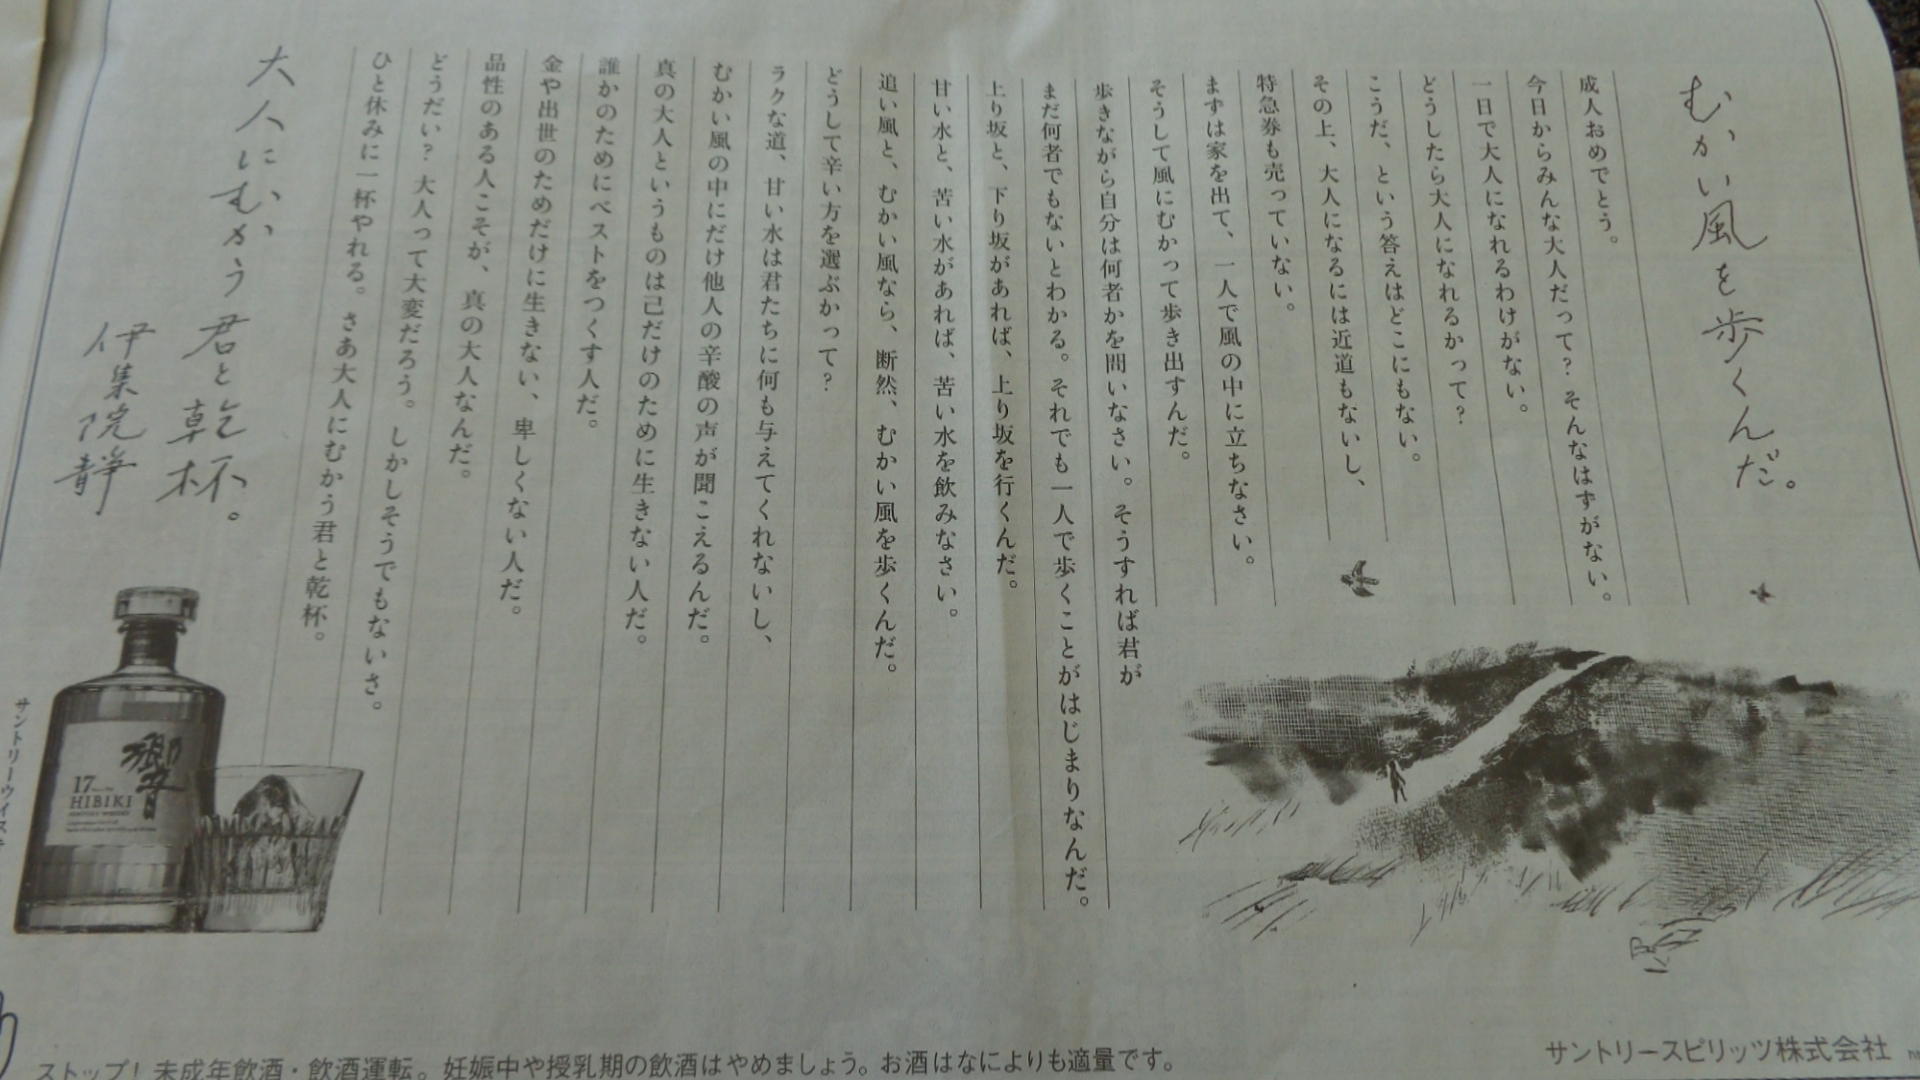 むかい風を歩くんだ。
成人おめでとう。
今日からみんな大人だって？そんなはずがない。
一日で大人になれるわけがない。
どうしたら大人になれるかって？
こうだ、という答えはどこにもない。
その上、大人になるには近道もないし、
特急券も売っていない。
まずは家を出て、一人で風の中に立ちなさい。
そうして風にむかって歩き出すんだ。
歩きながら自分は何者かを問いなさい。そうすれば君が
まだ何者でもないとわかる。それでも一人で歩くことがはじまりなんだ。
上り坂と、下り坂があれば、上り坂を行くんだ。
甘い水と、苦い水があれば、苦い水を飲みなさい。
追い風と、むかい風なら、断然、むかい風を歩くんだ。
どうして辛い方を選ぶかって？
ラクな道、甘い水は君たちに何も与えてくれないし、
むかい風の中にだけ他人の辛酸の声が聞こえるんだ。
真の大人というものは己だけのために生きない人だ。
誰かのためにベストをつくす人だ。
金や出世のためだけに生きない、卑しくない人だ。
品性のある人こそが、真の大人なんだ。
どうだい？大人って大変だろう。しかしそうでもないさ。
ひと休みに一杯やれる。さあ大人にむかう君と乾杯。
大人にむかう
君と乾杯。
伊集院静
響
17
HIBIKI
サントリーウイスキ
ストップ！未成年飲酒・飲酒運転。妊娠中や授乳期の飲酒はやめましょう。お酒はなによりも適量です。
サントリースピリッツ株式会社